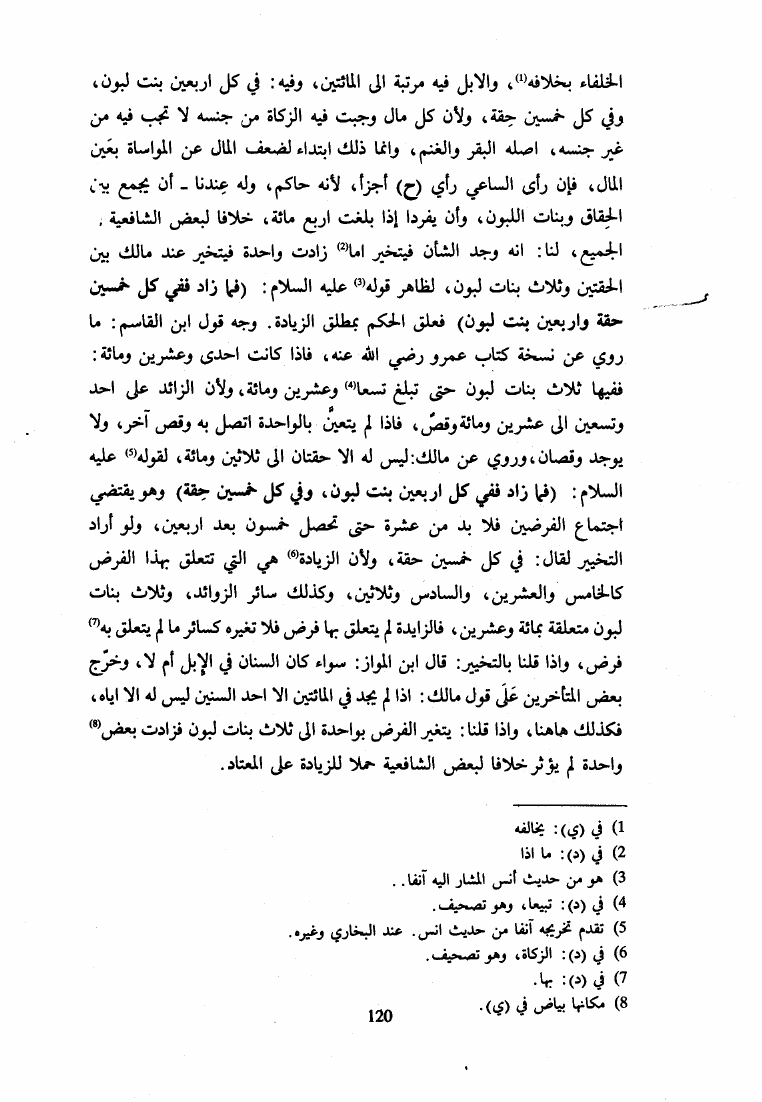 الخلفاء بخلافه(1)، والابل فيه مرتبة الى المائتين، وفيه: في كل اربعين بنت لبون،
وفي كل خمسين حِقة، ولأن كل مال وجبت فيه الزكاة من جنسه لا تجب فيه من
غير جنسه، اصله البقر والغنم، وانما ذلك ابتداء لضعف المال عن المواساة بعَين
المال، فإن رأى الساعي رأي (ح) أجزأ، لأنه حاكم، وله عِندنا - أن يجمع بين
الحِقاق وبنات اللبون، وأن يفردا إذا بلغت اربع مائة، خلافا لبعض الشافعية ,
الجميع، لنا: انه وجد الشأن فيتخير اما(2) زادت واحدة فيتخير عند مالك بين
الحقتين وثلاث بنات لبون، لظاهر قوله(3) عليه السلام: (فما زاد ففي كل خمسين
حقة واربعين بنت لبون) فعلق الحكم بمطلق الزيادة. وجه قول ابن القاسم: ما
روي عن نسخة كتاب عمرو رضي الله عنه، فاذا كانت احدى وعشرين ومائة:
ففيها ثلاث بنات لبون حتى تبلغ تسعا(4) وعشرين ومائة، ولأن الزائد على احد
وتسعين الى عشرين ومائة وقصٌ، فاذا لم يتعينَّ بالواحدة اتصل به وقص آخر، ولا
يوجد وقصان، وروي عن مالك: ليس له الا حقتان الى ثلاثين ومائة، لقوله(5) عليه
السلام: (فما زاد ففي كل اربعين بنت لبون، وفي كل خمسين حِقة) وهو يقتضي
اجتماع الفرضين فلا بد من عشرة حتى تحصل خمسون بعد اربعين، ولو أراد
التخيير لقال: في كل خمسين حقة، ولأن الزيادة(6) هي التي تتعلق بهذا الفرض
كالخامس والعشرين، والسادس وثلاثين، وكذلك سائر الزوائد، وثلاث بنات
لبون متعلقة بمائة وعشرين، فالزايدة لم يتعلق بها فرض فلا تغيره كسائر ما لم يتعلق به(7)
فرض، واذا قلنا بالتخيير: قال ابن المواز: سواء كان السنان في الإبل أم لا، وخرّج
بعض المتأخرين عَلَى قول مالك: اذا لم يجد في المائتين الا احد السنين ليس له الا اياه،
فكذلك هاهنا، واذا قلنا: يتغير الفرض بواحدة الى ثلاث بنات لبون فزادت بعض(8)
واحدة لم يؤثر خلافا لبعض الشافعية حملا للزيادة على المعتاد.
1) في (ي): يخالفه
2) في (د): ما اذا
3) هو من حديث أنس المشار اليه آنفا..
4) في (د): تبيعا، وهو تصحيف.
5) تقدم تخريجه آنفا من حديث انس. عند البخاري وغيره.
6) في (د): الزكاة، وهو تصحيف.
7) في (د): بها.
8) مكانها بياض في (ي).
120